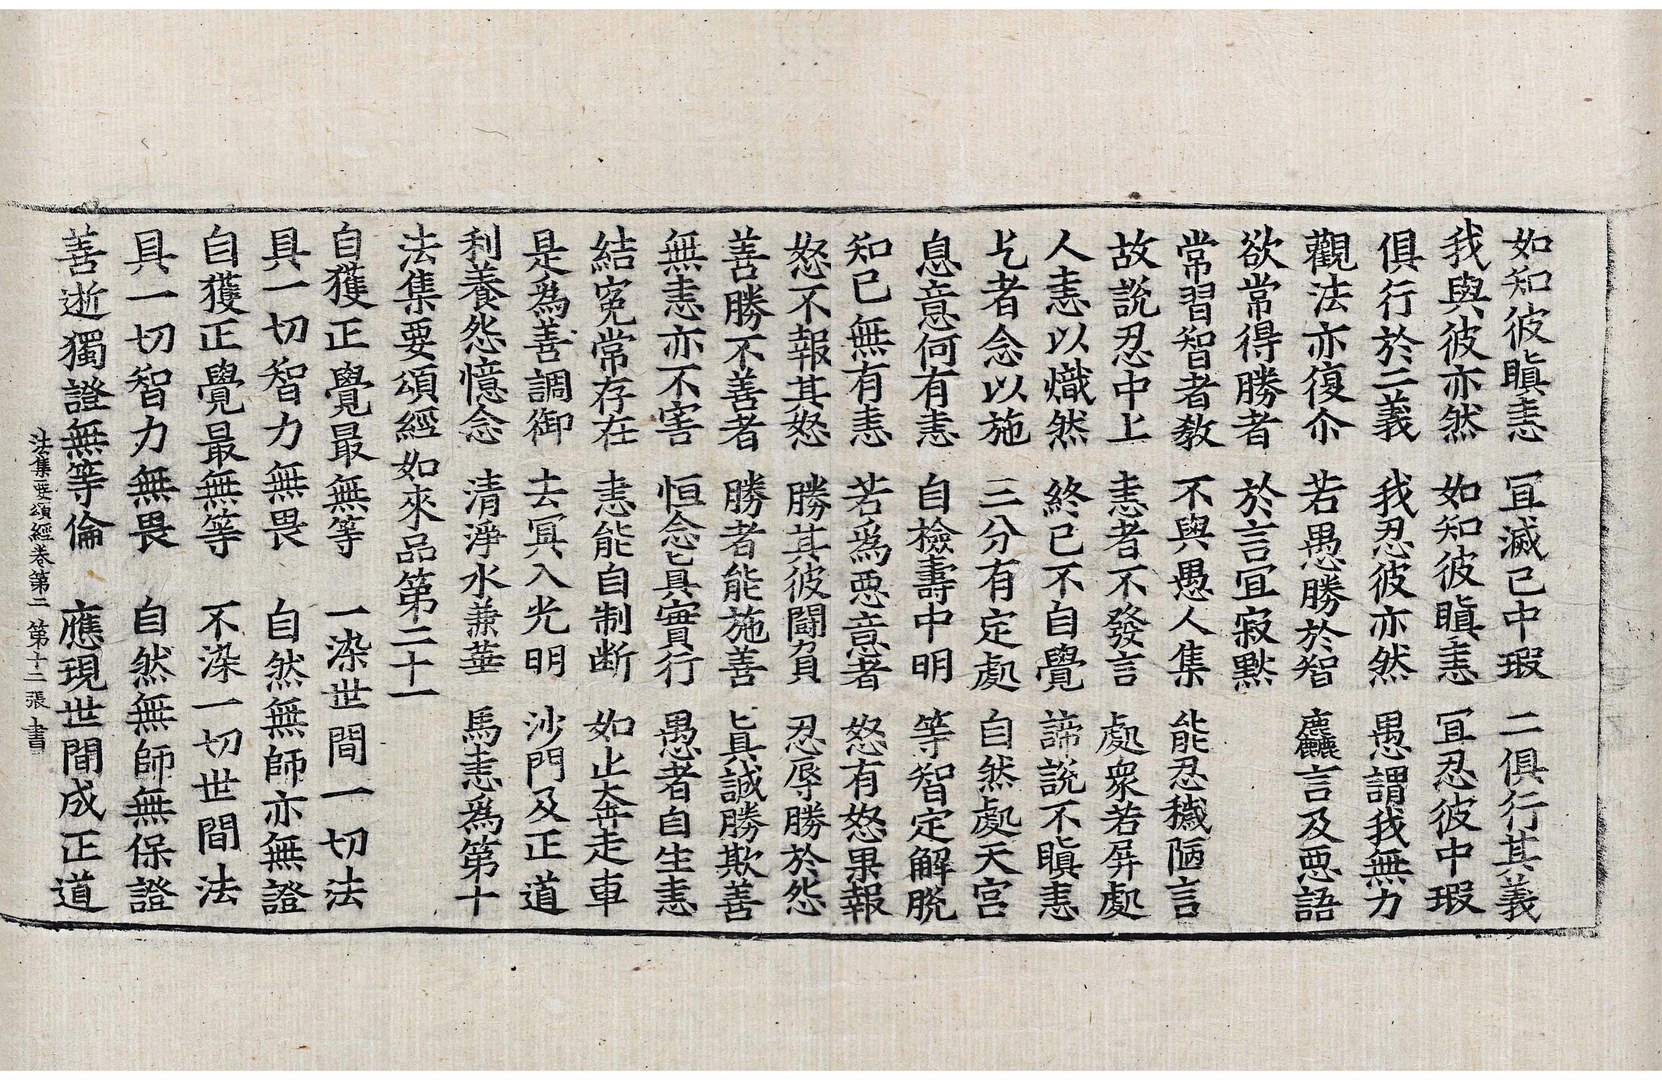 如知彼瞋恚　冝滅己中瑕　二俱行其義
我與彼亦然　如知彼瞋恚　冝忍彼中瑕
俱行於二義　我忍彼亦然　愚謂我無力
觀法亦復尒　若愚勝於智　麤言及惡語
欲常得勝者　於言冝寂黙
常習智者教　不與愚人集　能忍穢陋言
故說忍中上　恚者不發言　處衆若屏處
人恚以熾然　終已不自覺　諦說不瞋恚
乞者念以施　三分有定處　自然處天宮
息意何有恚　自檢壽中明　等智定解脫
知已無有恚　若爲惡意者　怒有怒果報
怒不報其怒　勝其彼鬪負　忍辱勝於怨
善勝不善者　勝者能施善　眞誠勝欺善
無恚亦不害　恒念眞實行　愚者自生恚
結寃常存在　恚能自制断　如止奔走車
是為善調御　去冥入光明　沙門及正道
利養怨憶念　清淨水兼華　馬恚為第十
法集要頌經如來品第二十一
自獲正覺最無等　一染世間一切法
具一切智力無畏　自然無師亦無證
自獲正覺最無等　不染一切世間法
具一切智力無畏　自然無師無保證
善逝獨證無等倫　應現世間成正道
法集要頌經卷第二　第十二張　書